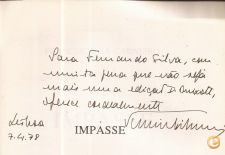 Para Fernando Silva, com
muita pena que não seja
mais uma edição
oferece cordialmente
Lisboa
7.4.78
IMPASSE